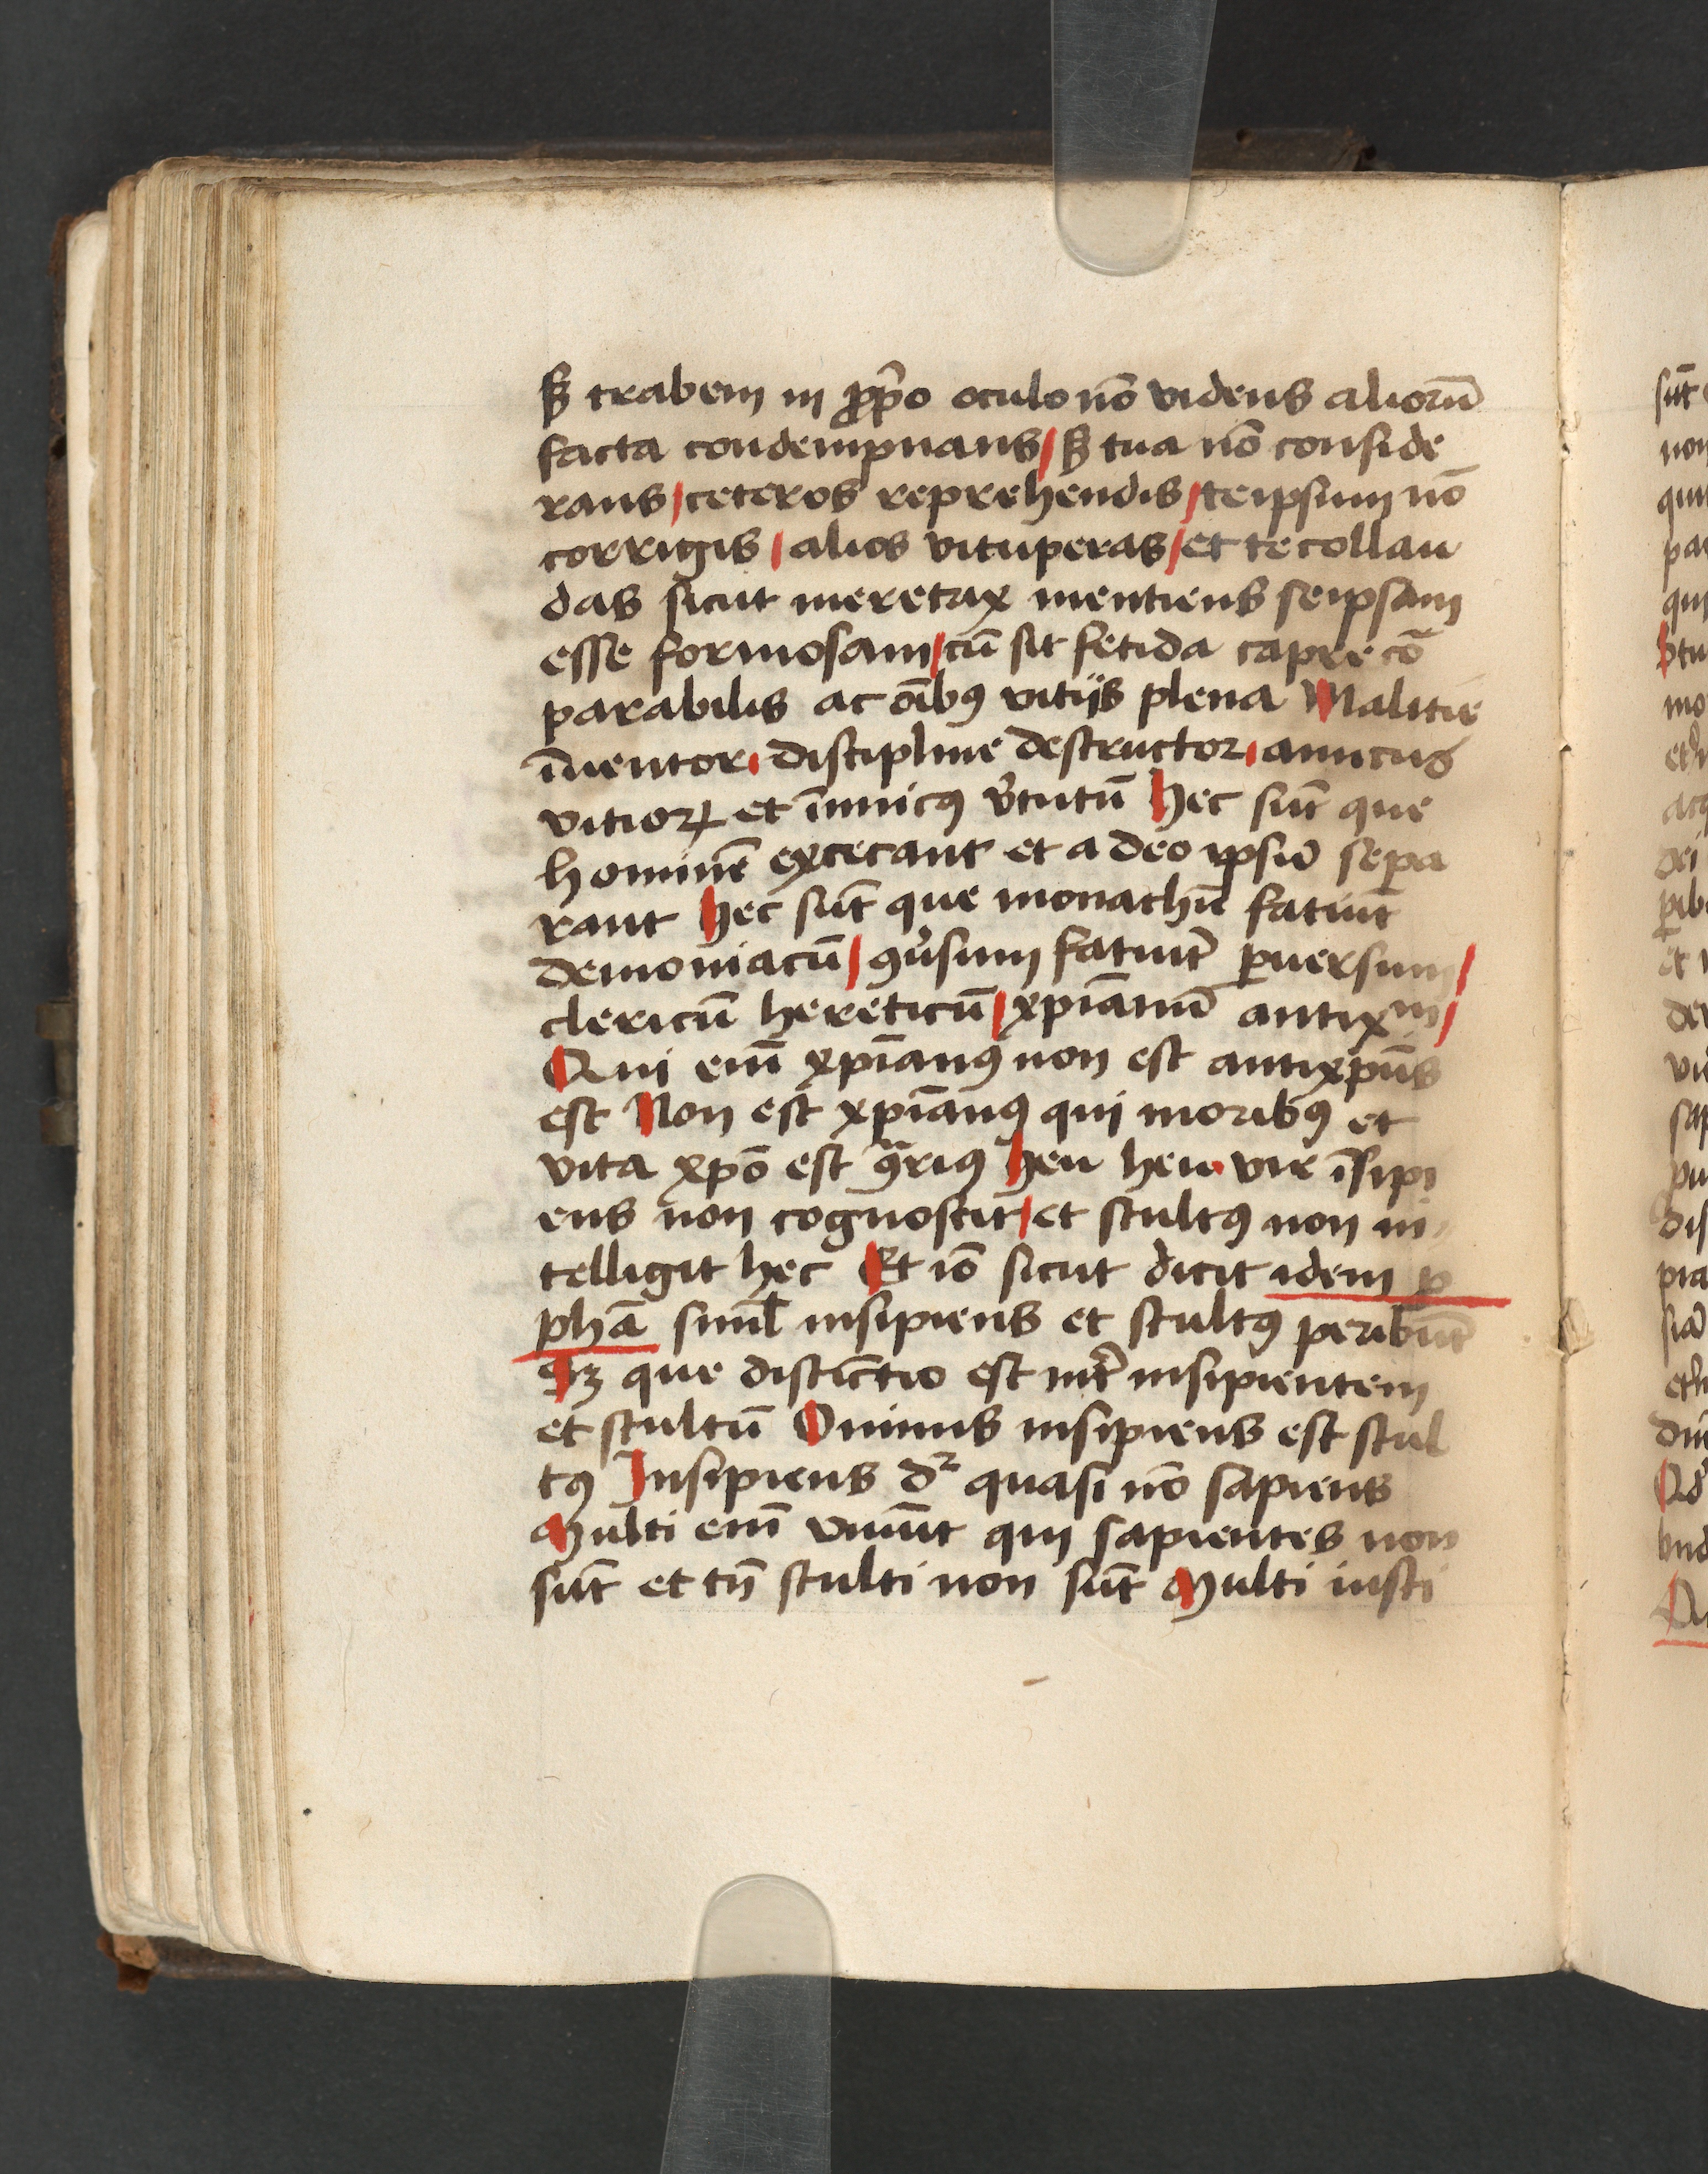 ẞ trabem in ꝓp̄o oculo nō videns aliorū
facta condempnans/ ẞ tua nō conside
rans/ ceteros reprehendis/ teipsum nō
corrigis/ alios vituperas/ et te collau
das sicut meretrix mentiens seipsam
esse formosam/ cū sit fetida capre cō
parabilis ac oībꝯ vitijs plena Malitie
īuentor. discipline destructor. amicus
vitioꝝ et īimicꝯ v̓tutū Hec sūt que
hominē excecant et a deo ipsū sepa
rant Hec sūt que monachū faciūt
demoniacū/ ꝯu̓sum faciūt ꝑuersum/
clericū hereticū/ xp̄ianū antixm/
Qui em̄ xp̄ianꝯ non est antixp̄us
est Non est xp̄ianꝯ qui moribꝯ et
vita xp̄o est ꝯ̄riꝯ Heu heu. vir īsipi
ens non cognoscit/ et stultꝯ non in
telligit hec Et iō sicut dicit idem p̄
phā simĺ insipiens et stultꝯ peribūt
Sꝫ que distīctio est int̄ insipientem
et stultū Omnis insipiens est stul
tꝯ Insipiens dꝛ quasi nō sapiens
Multi em̄ viuūt qui sapientes non
sūt et tn̄ stulti non sūt Multi iusti